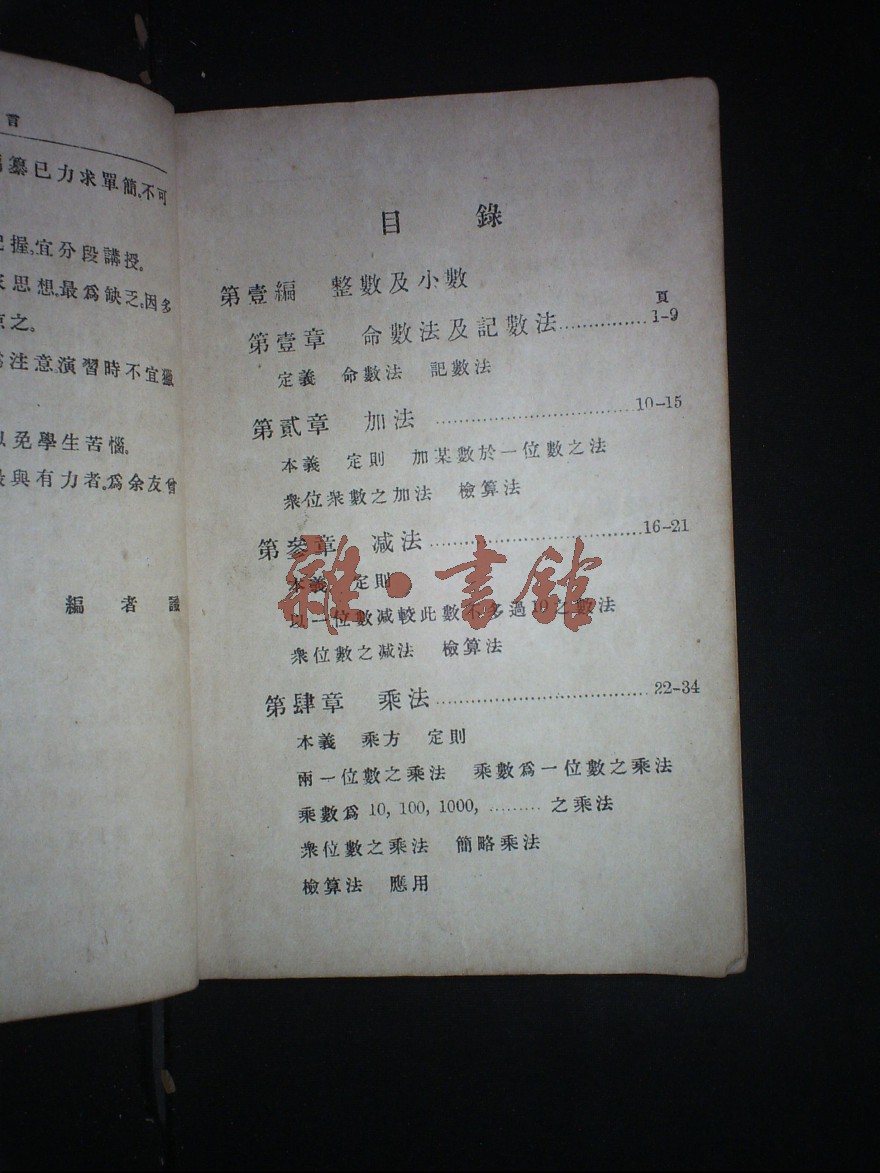 言
纂已力求單簡,不可
握,宜分段講授。
思想,最爲缺乏。因多
之。
注意,演習時不宜獵
免學生苦惱。
與有力者。爲余友曾
編者
目錄
第壹編 整數及小數
頁
第壹章 命數法及記數法……………1-9
定義 命數法 記數法
第貳章 加法……………………………10-15
本義 定則 加某數於一位數之法
衆位衆數之加法 檢算法
第參章 減法……………………………16-21
本義 定則
以一位數減較此數不多過10之數法
衆位數之減法 檢算法
第肆章 乘法……………………………22-34
本義 乘方 定則
兩一位數之乘法 乘數爲一位數之乘法
乘數爲10, 100, 1000, ……… 之乘法
衆位數之乘法 簡略乘法
檢算法 應用
雜·書館